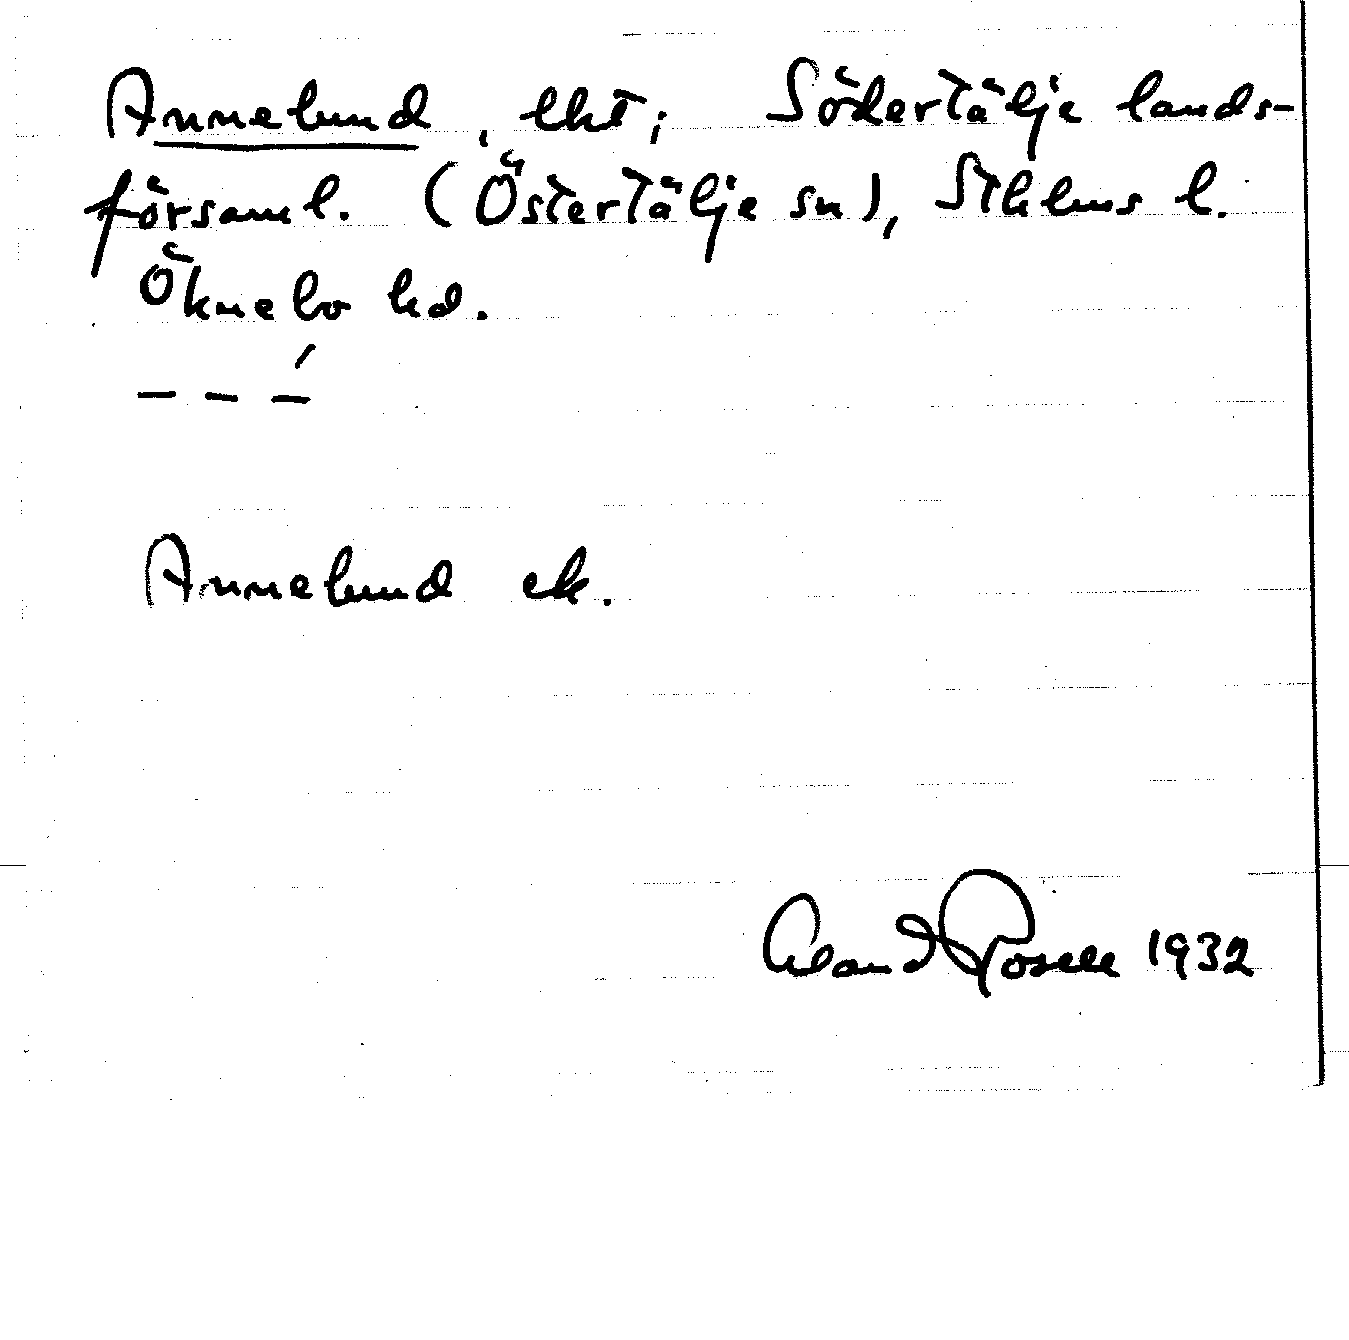 Annelund, lht; Södertälje lands-
församl. (Östertälje sn), Sthlms l.
Öknebo hd.
– – –́
Annelund ek.
Erland Rosell 1932